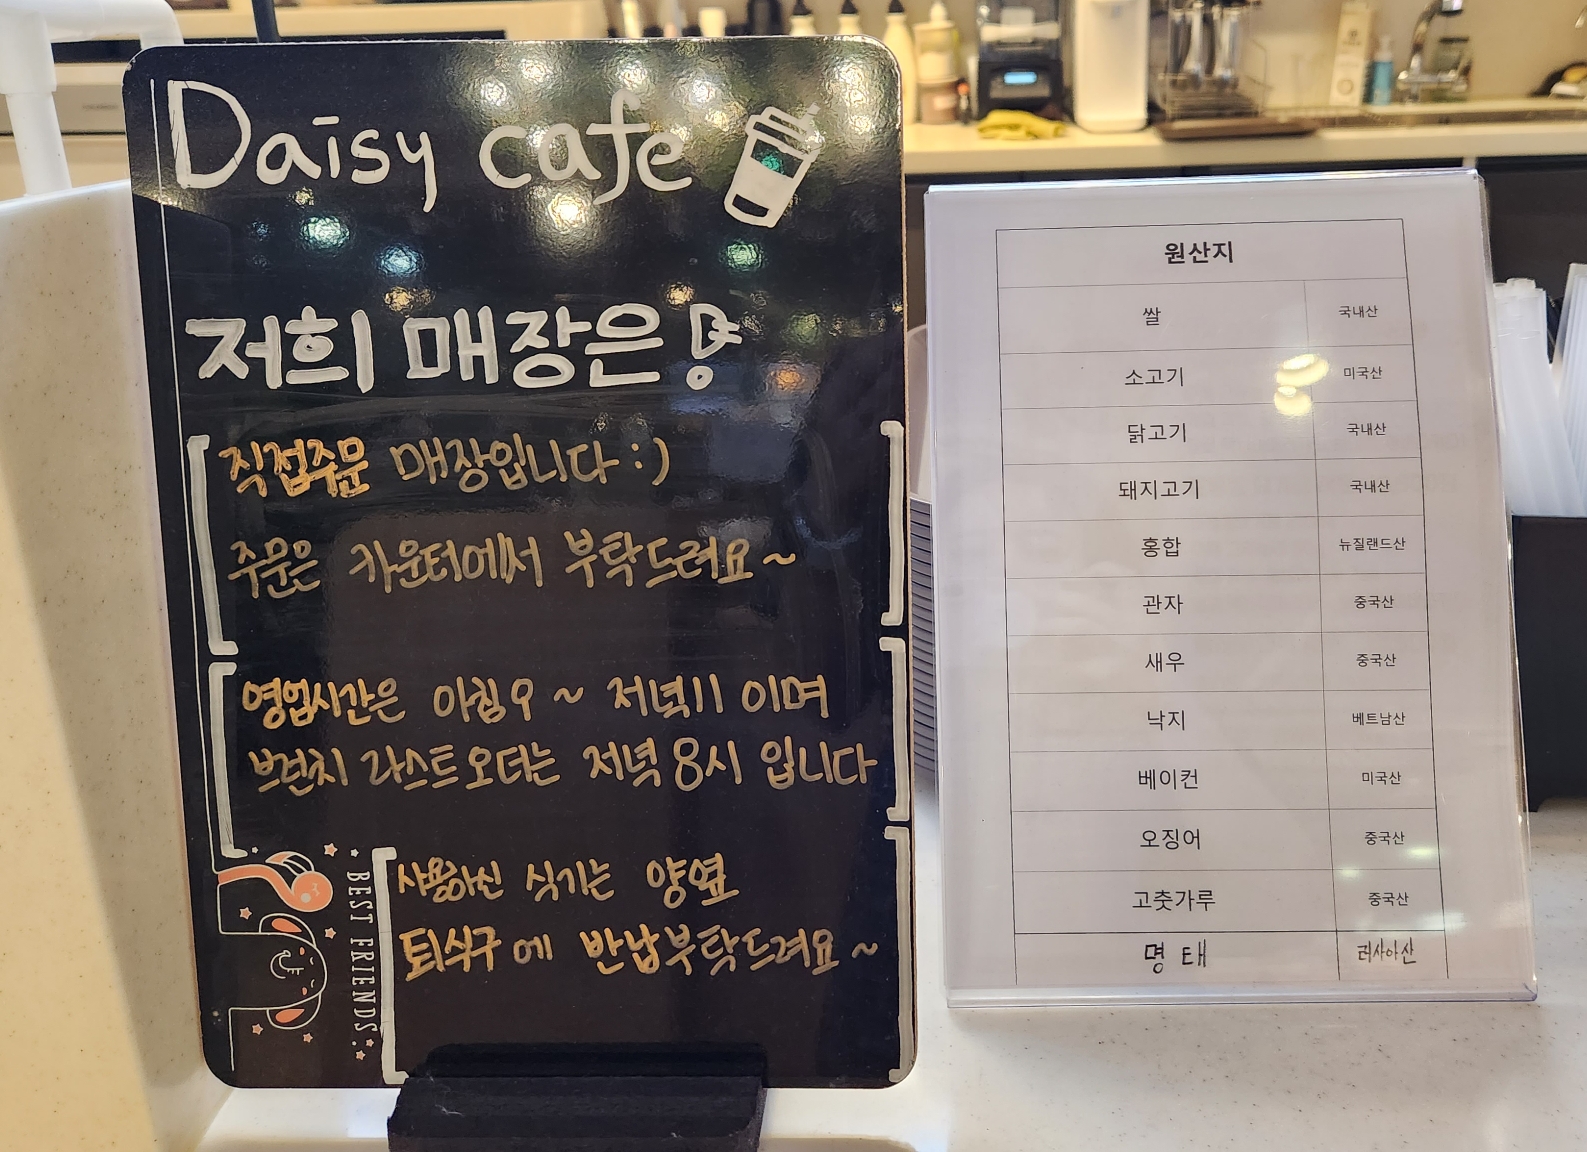 Daisy cafe
저희 매장은
직접주문 매장입니다 :)
주문은 카운터에서 부탁드려요~
영업시간은 아침9 ~ 저녁11 이며
브런치 라스트오더는 저녁 8시 입니다
사용하신 식기는 양옆
퇴식구에 반납부탁드려요~
BEST FRIENDS
원산지
쌀 국내산
소고기 미국산
닭고기 국내산
돼지고기 국내산
홍합 뉴질랜드산
관자 중국산
새우 중국산
낙지 베트남산
베이컨 미국산
오징어 중국산
고춧가루 중국산
명태 러시아산